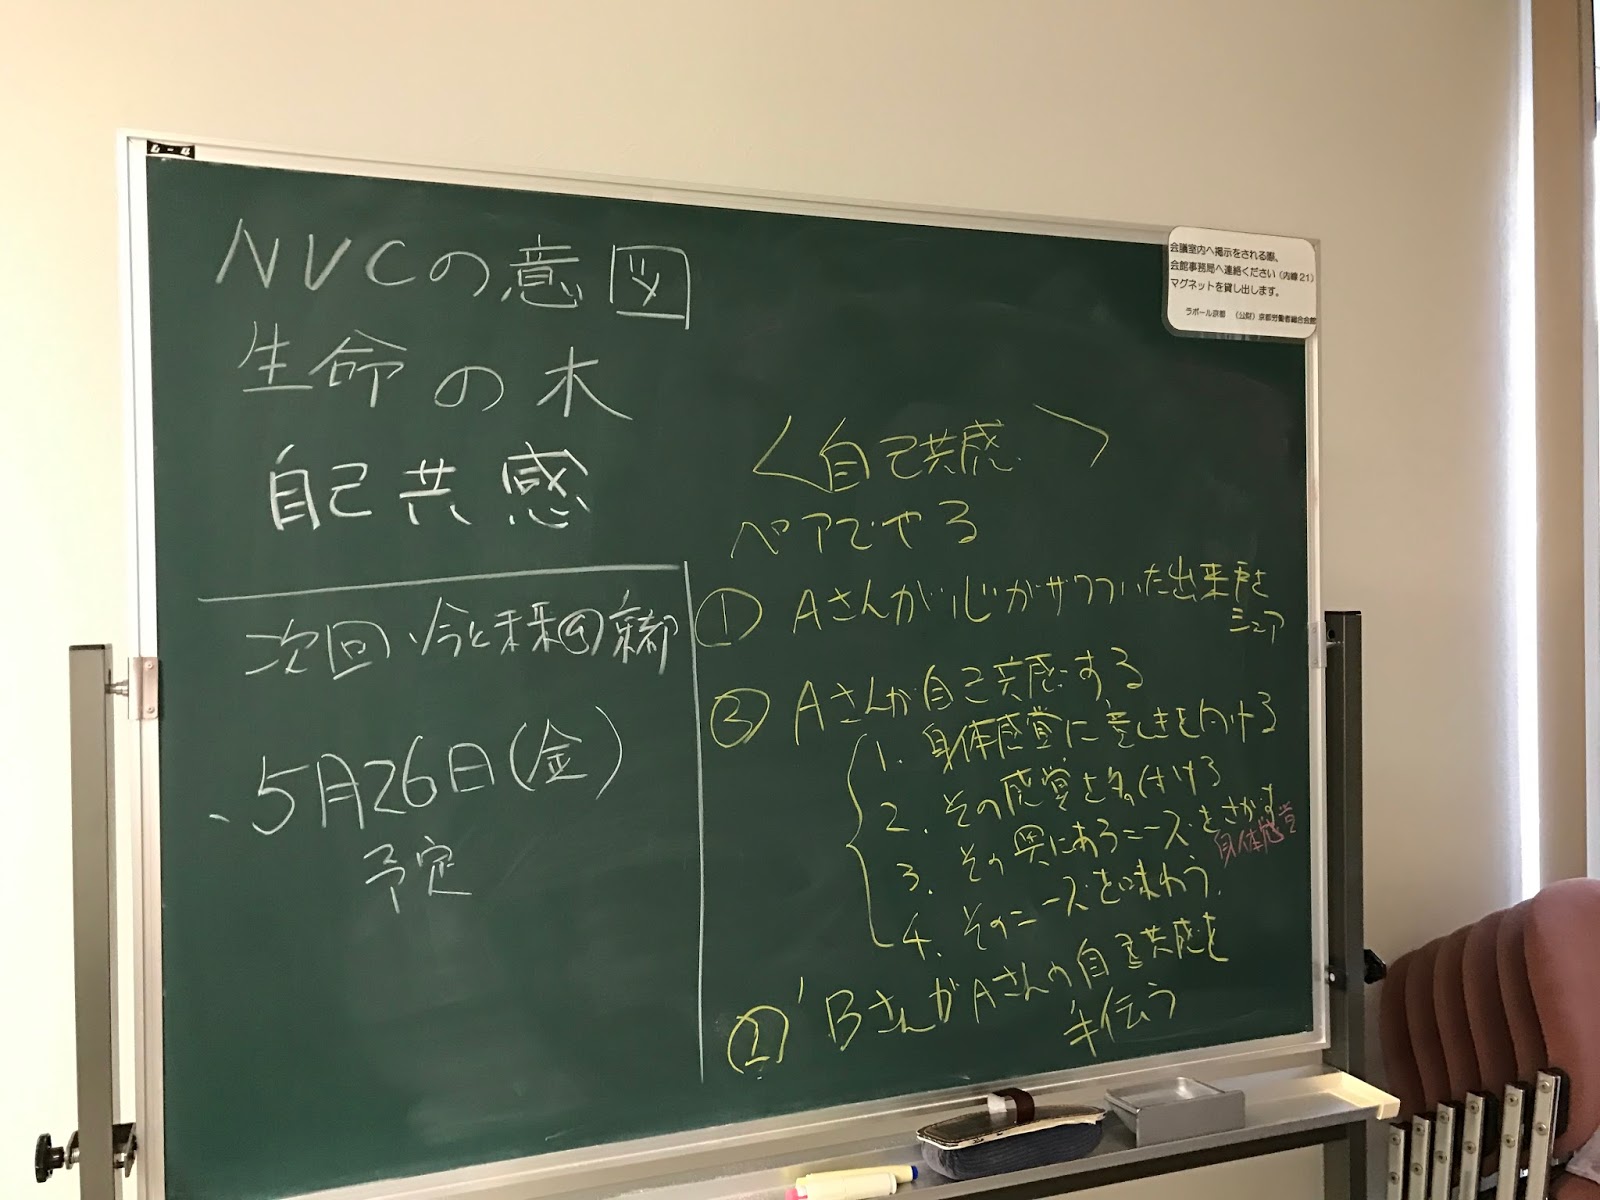 NVCの意図
生命の木
自己共感
次回、今と未来 京都
、5月26日(金)
予定
<自己共感>
ペアでやる
① Aさんが心がザワついた出来事を
シェア
② Aさんが自己共感する
1. 身体感覚に意しきを向ける
2. その感覚を名付ける
3. その奥にあるニーズをさがす
身体感覚
4. そのニーズを味わう.
②' BさんがAさんの自己共感を
手伝う
会議室内へ掲示をされる際、
会館事務局へ連絡ください(内線21)
マグネットを貸し出します。
ラボール京都 (公財)京都労働者総合会館